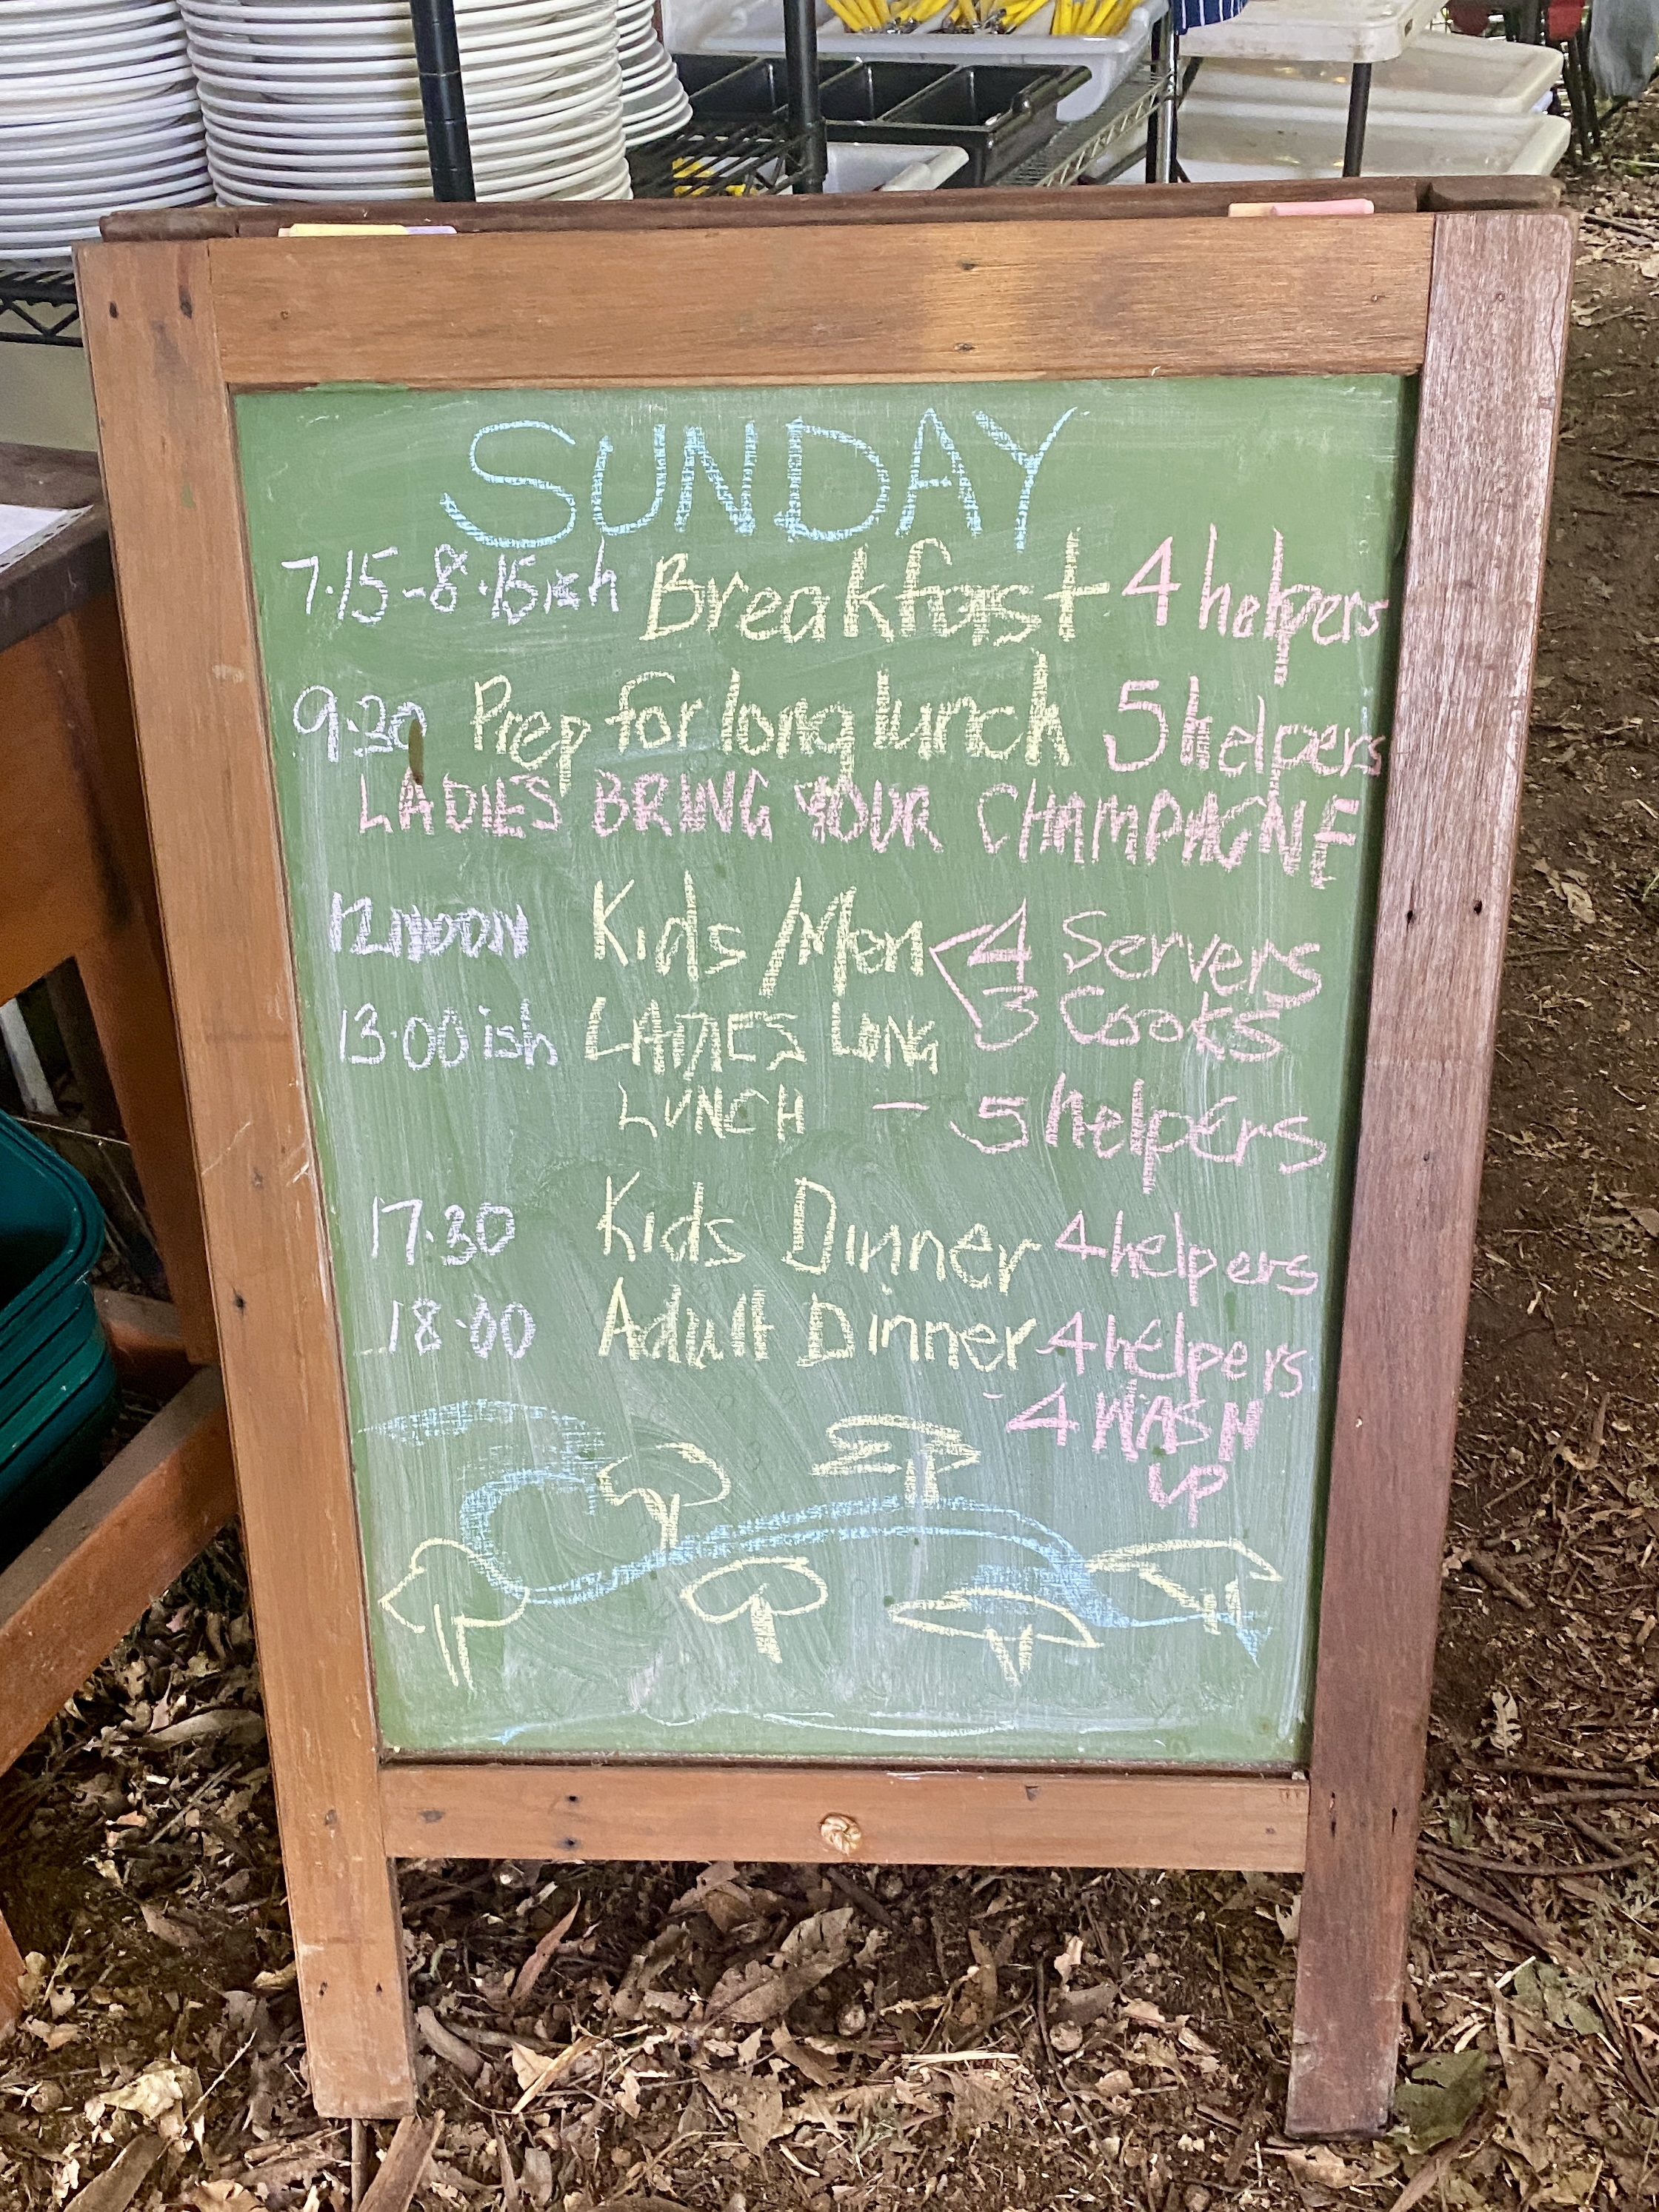 SUNDAY
7.15-8.15ish Breakfast 4 helpers
9.30 Prep for long lunch 5 helpers
LADIES BRING YOUR CHAMPAGNE
12 NOON Kids/Men < 4 Servers
3 Cooks
13.00ish LADIES LONG
LUNCH - 5 helpers
17.30 Kids Dinner 4 helpers
18.00 Adult Dinner 4 helpers
- 4 WASH
UP